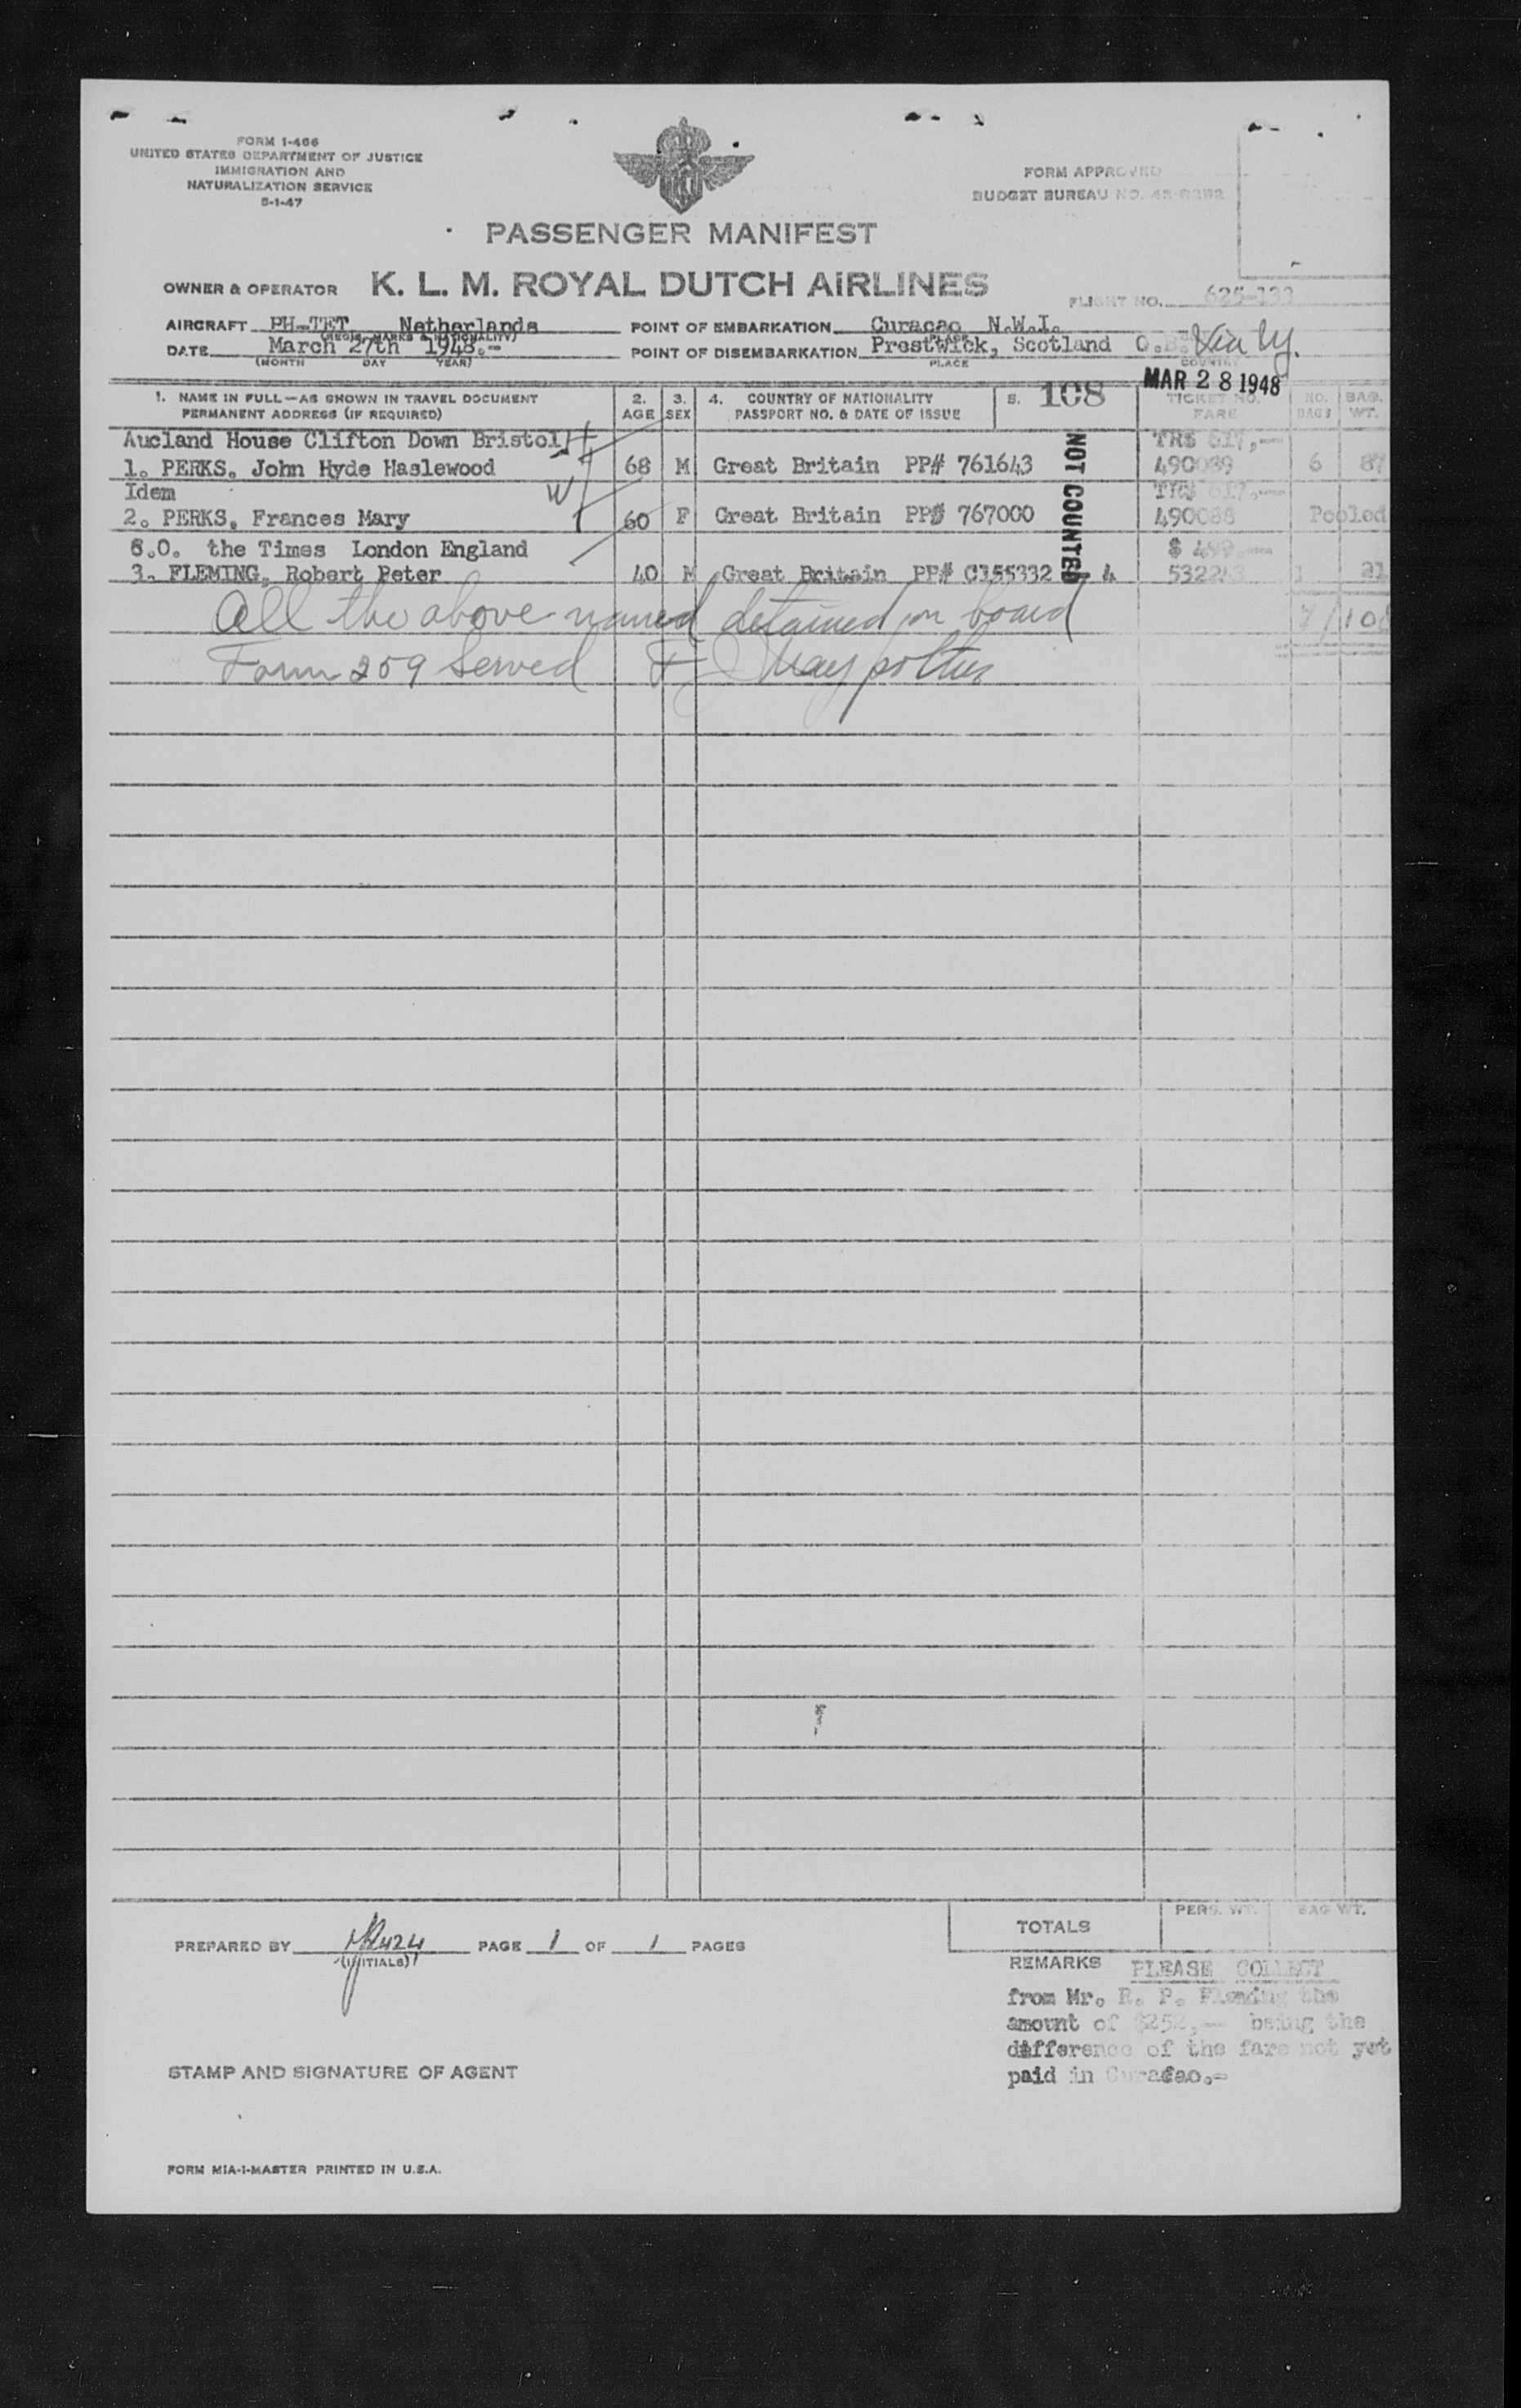 FORM I-466
UNITED STATES DEPARTMENT OF JUSTICE
IMMIGRATION AND
NATURALIZATION SERVICE
5-1-47
KLM
FORM APPROVED
BUDGET BUREAU NO.
PASSENGER MANIFEST
OWNER & OPERATOR K. L. M. ROYAL DUTCH AIRLINES
FLIGHT NO. 625-133
AIRCRAFT PH-TET Netherlands POINT OF EMBARKATION Curacao N.W.I.
(REG. MARKS & NATIONALITY) PLACE
DATE March 27th 1948.- POINT OF DISEMBARKATION Prestwick, Scotland via Ny.
(MONTH DAY YEAR) PLACE COUNTRY
MAR 28 1948
1. NAME IN FULL—AS SHOWN IN TRAVEL DOCUMENT 2. 3. 4. COUNTRY OF NATIONALITY 5. 108 TICKET NO. NO. BAG.
PERMANENT ADDRESS (IF REQUIRED) AGE SEX PASSPORT NO. & DATE OF ISSUE FARE BAGS WT.
NOT COUNTED
Aucland House Clifton Down Bristol TRS 617,—
1. PERKS, John Hyde Haslewood 68 M Great Britain PP# 761643 490089 6 87
Idem W TRS 617,—
2. PERKS, Frances Mary 60 F Great Britain PP# 767000 490088 Pooled
C.O. the Times London England $ 499,—
3. FLEMING, Robert Peter 40 M Great Britain PP# C155332 4 532243 1 21
All the above named detained on board 7/108
Form 259 Served
PREPARED BY PAGE 1 OF 1 PAGES
(INITIALS)
TOTALS PERS. WT. BAG WT.
REMARKS PLEASE COLLECT
from Mr. R. P. Fleming the
amount of $252,— being the
difference of the fare not yet
paid in Curacao.-
STAMP AND SIGNATURE OF AGENT
FORM MIA-1-MASTER PRINTED IN U.S.A.